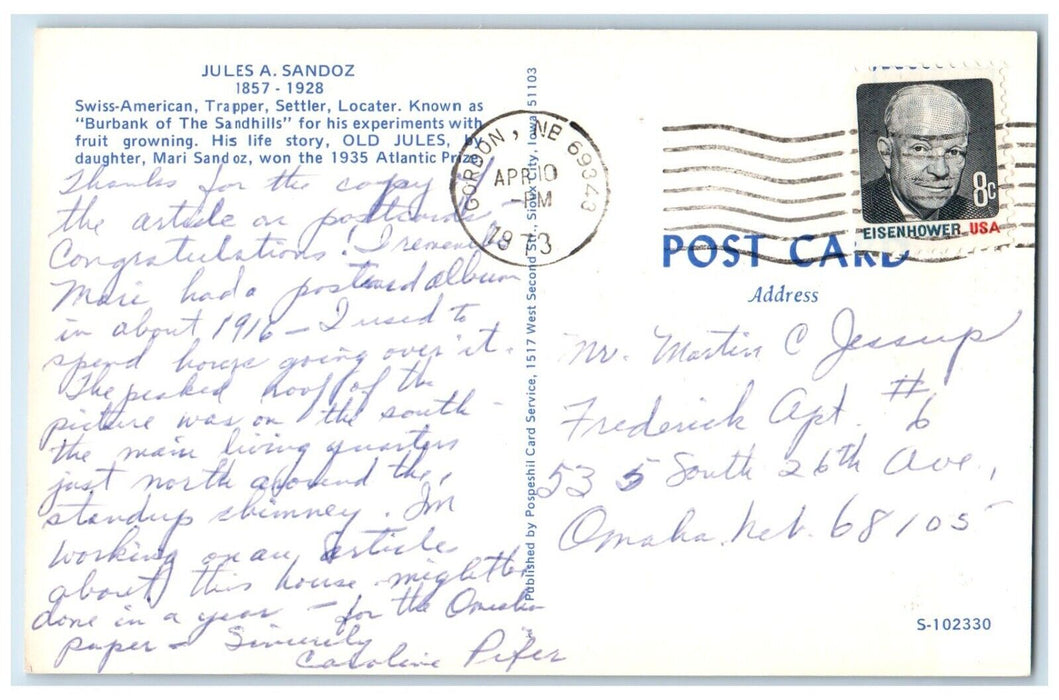 JULES A. SANDOZ
1857 - 1928
Swiss-American, Trapper, Settler, Locater. Known as
"Burbank of The Sandhills" for his experiments with
fruit growning. His life story, OLD JULES, by
daughter, Mari Sandoz, won the 1935 Atlantic Prize.
Thanks for the copy of
the article on postcards -
Congratulations! I remember
Mari had a postcard album
in about 1916 - I used to
spend hours going over it.
The peaked roof of the
picture was on the south -
the main living quarters
just north around the
standup chimney. Im
working on an article
about this house might be
done in a year - for the Omaha
paper - Sincerely
Caroline Pifer
Published by Pospeshil Card Service, 1517 West Second St., Sioux City, Iowa 51103
GORDON, NE 69343
APR 10
-PM
1973
8c
EISENHOWER USA
POST CARD
Address
Mr. Martin C Jessup
Frederick Apt. #6
535 South 26th Ave.,
Omaha, Neb. 68105
S-102330